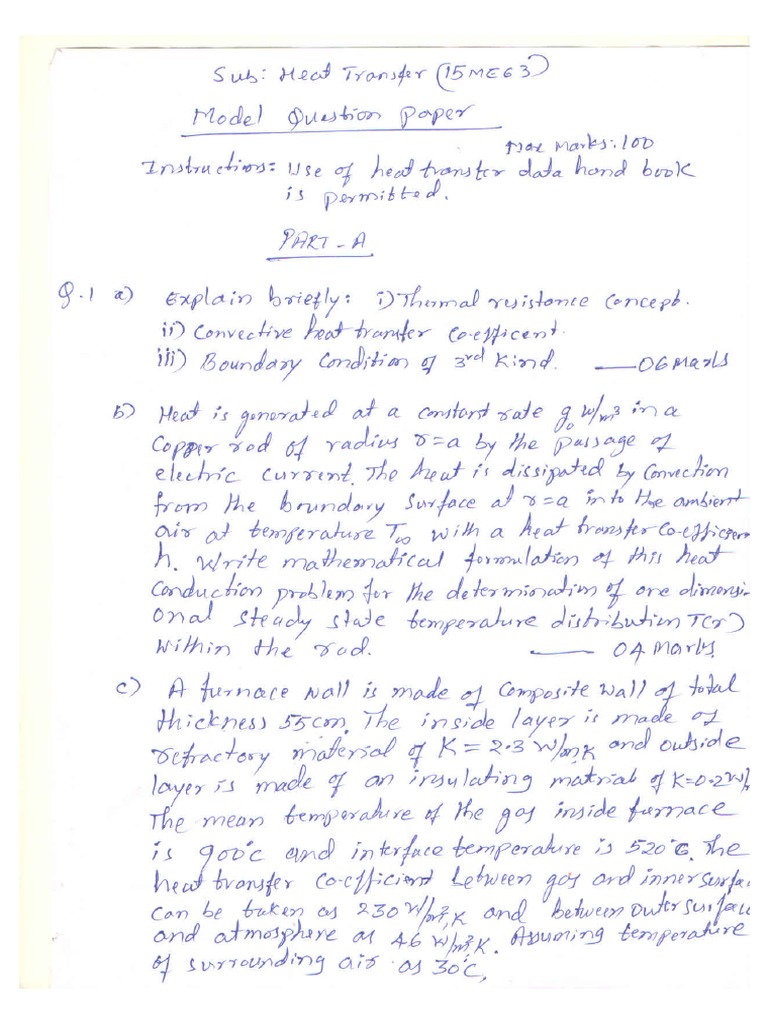 Sub: Heat Transfer (15ME63)
Model Question Paper
Max Marks: 100
Instructions: Use of heat transfer data hand book
is permitted.
PART-A
Q.1 a) Explain briefly: i) Thermal resistance concept.
ii) Convective heat transfer co-efficent.
iii) Boundary Condition of 3rd Kind. — 06 Marks
b) Heat is generated at a constant rate g₀ W/m³ in a
Copper rod of radius r=a by the passage of
electric current. The heat is dissipated by convection
from the boundary surface at r=a into the ambient
air at temperature T∞ with a heat transfer co-efficien
h. Write mathematical formulation of this heat
conduction problem for the determination of one dimensi-
onal steady state temperature distribution T(r)
within the rod. — 04 Marks
c) A furnace wall is made of composite wall of total
thickness 55cm. The inside layer is made of
refractory material of K = 2.3 W/m,K and outside
layer is made of an insulating matrial of K=0.2 W/
The mean temperature of the gas inside furnace
is 900°c and interface temperature is 520°C. The
heat transfer co-efficient between gas and inner surfa
can be taken as 230 W/m²,K and between outer surfac
and atmosphere as 46 W/m²,K. Assuming temperature
of surrounding air as 30°c,